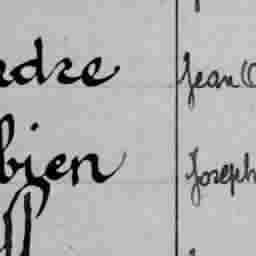 ndre Jean
bien Joseph